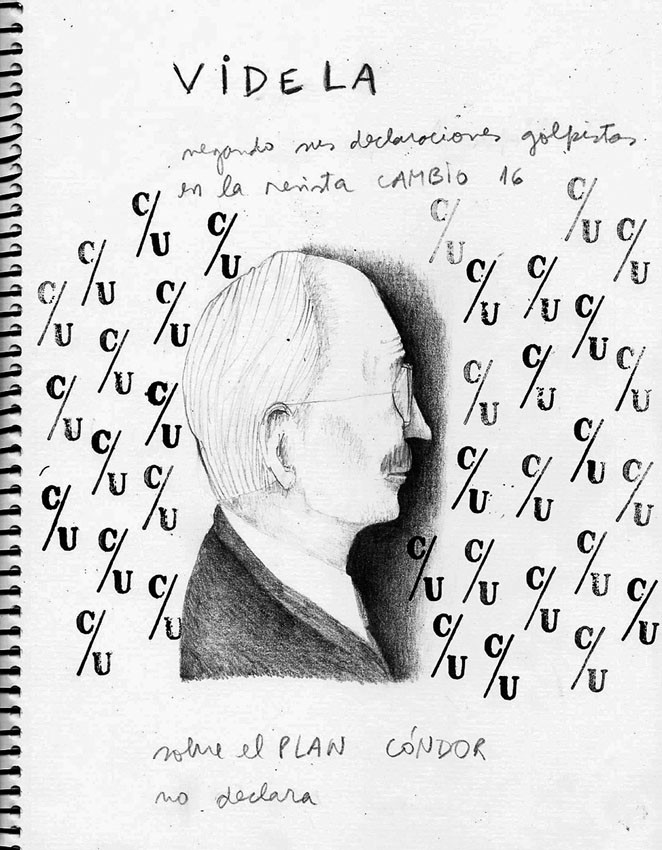 VIDELA
negando sus declaraciones golpistas
en la revista CAMBIO 16
C/U C/U C/U C/U
C/U C/U C/U
C/U C/U C/U C/U
C/U C/U
C/U C/U C/U C/U
C/U C/U
C/U C/U
C/U C/U C/U C/U
C/U
C/U C/U C/U C/U
C/U C/U C/U
C/U C/U C/U C/U
sobre el PLAN CÓNDOR
no declara